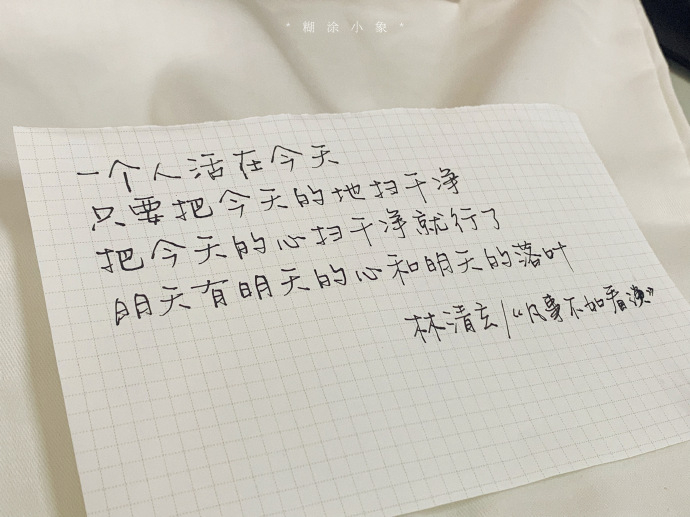 * 糊涂小象 *
一个人活在今天
只要把今天的地扫干净
把今天的心扫干净就行了
明天有明天的心和明天的落叶
林清玄/“凡事不如看淡”